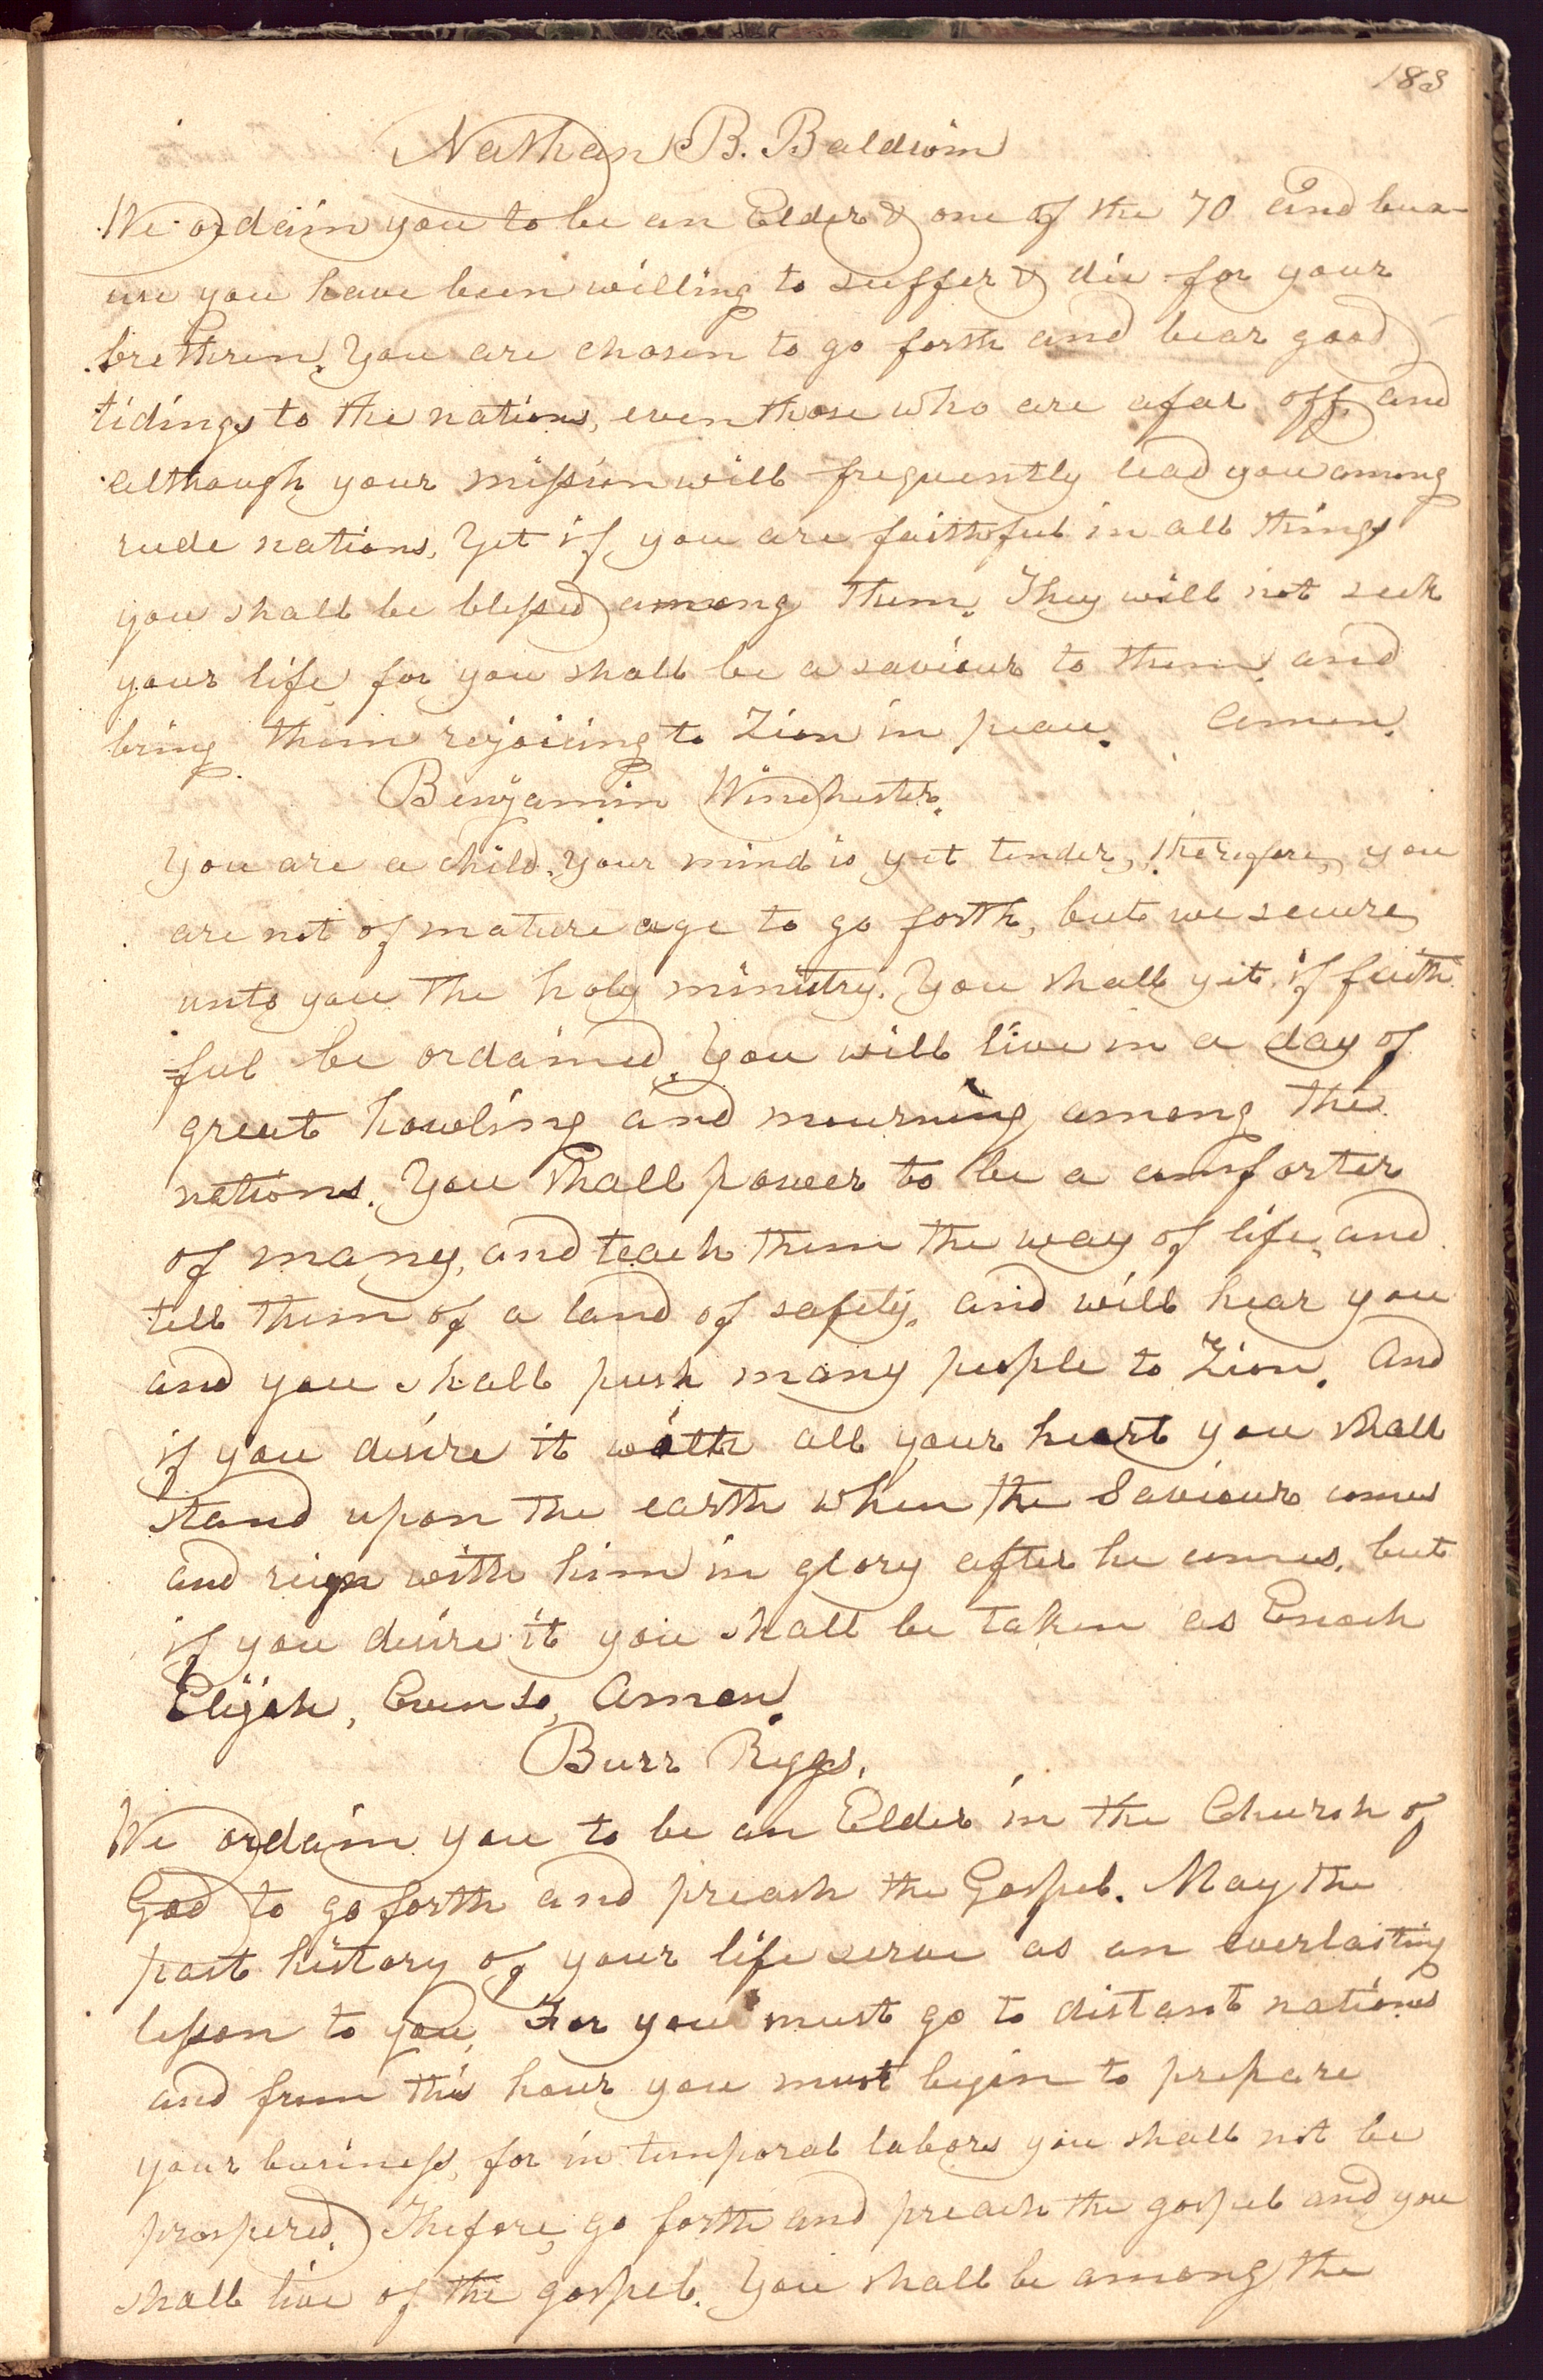 183
Nathan B. Baldwin
We ordain you to be an Elder & one of the 70 and beca-
use you have been willing to suffer & die for your
brethren. You are chosen to go forth and bear good
tidings to the nations, even those who are afar off, and
although your mission will frequently lead you among
rude nations, Yet if you are faithful in all things
you shall be blessed among them. They will not seek
your life, for you shall be a saviour to them, and
bring them rejoicing to Zion in peace. Amen.
Benjamin Winchester.
You are a child. Your mind is yet tender, therefore, you
are not of mature age to go forth, but we secure
unto you the holy ministry. You shall yet, if faith
ful be ordained. You will live in a day of
great howling and mourning among the
nations. You shall power to be a comforter
of many, and teach them the way of life, and
tell them of a land of safety, and will hear you
and you shall push many people to Zion. And
if you desire it with all your heart you shall
stand upon the earth when the Saviour comes
and reign with him in glory after he comes, but
if you desire it you shall be taken as Enoch
Elijah, Even so, Amen.
Burr Riggs.
We ordain you to be an Elder in the Church of
God to go forth and preach the Gospel. May the
past history of your life serve as an everlasting
lesson to you, For you must go to distant nations
and from this hour you must begin to prepare
your business, for in temporal labors you shall not be
prospered. Thefore, go forth and preach the gospel and you
shall live of the gospel. You shall be among the